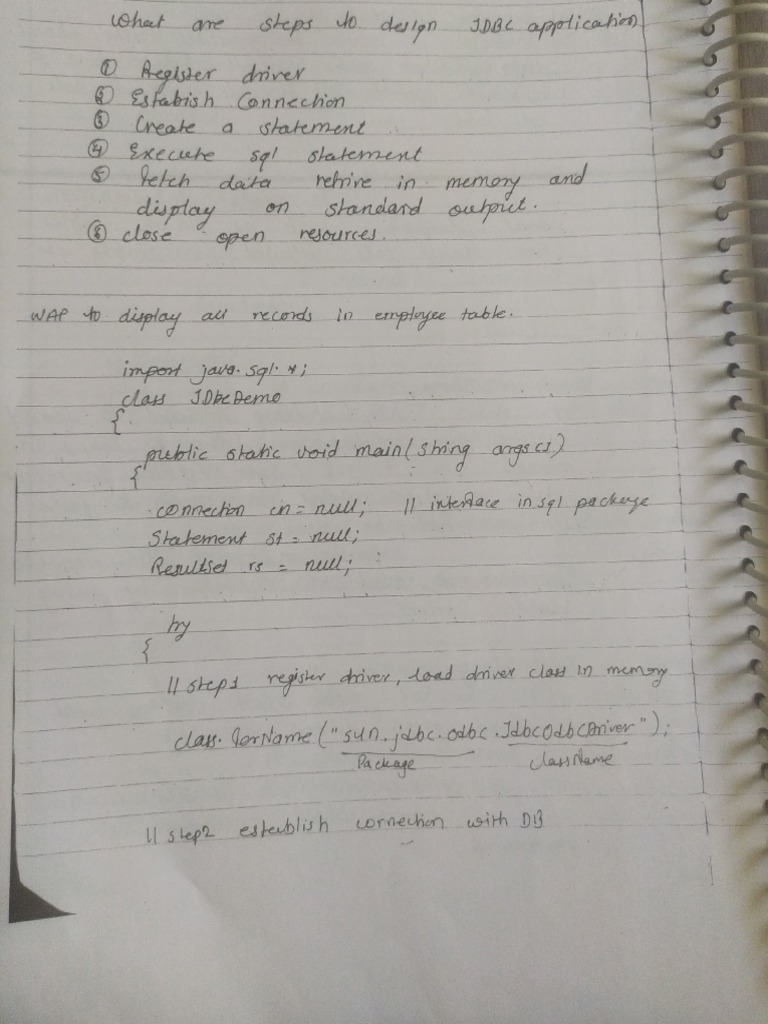 What are steps to design JDBC application
① Register driver
② Estabish Connection
③ Create a statement
④ Execute sql statement
⑤ Fetch data retrive in memory and
display on standard output.
⑥ close open resources.
WAP to display all records in employee table.
import java.sql.*;
class JDbcDemo
{
public static void main(String args[])
{
connection cn = null; // interface in sql package
Statement st = null;
Resultset rs = null;
try
{
// step1 register driver, load driver class in memory
class.forName("sun.jdbc.odbc.JdbcOdbcDriver");
Package className
// step2 establish connection with DB